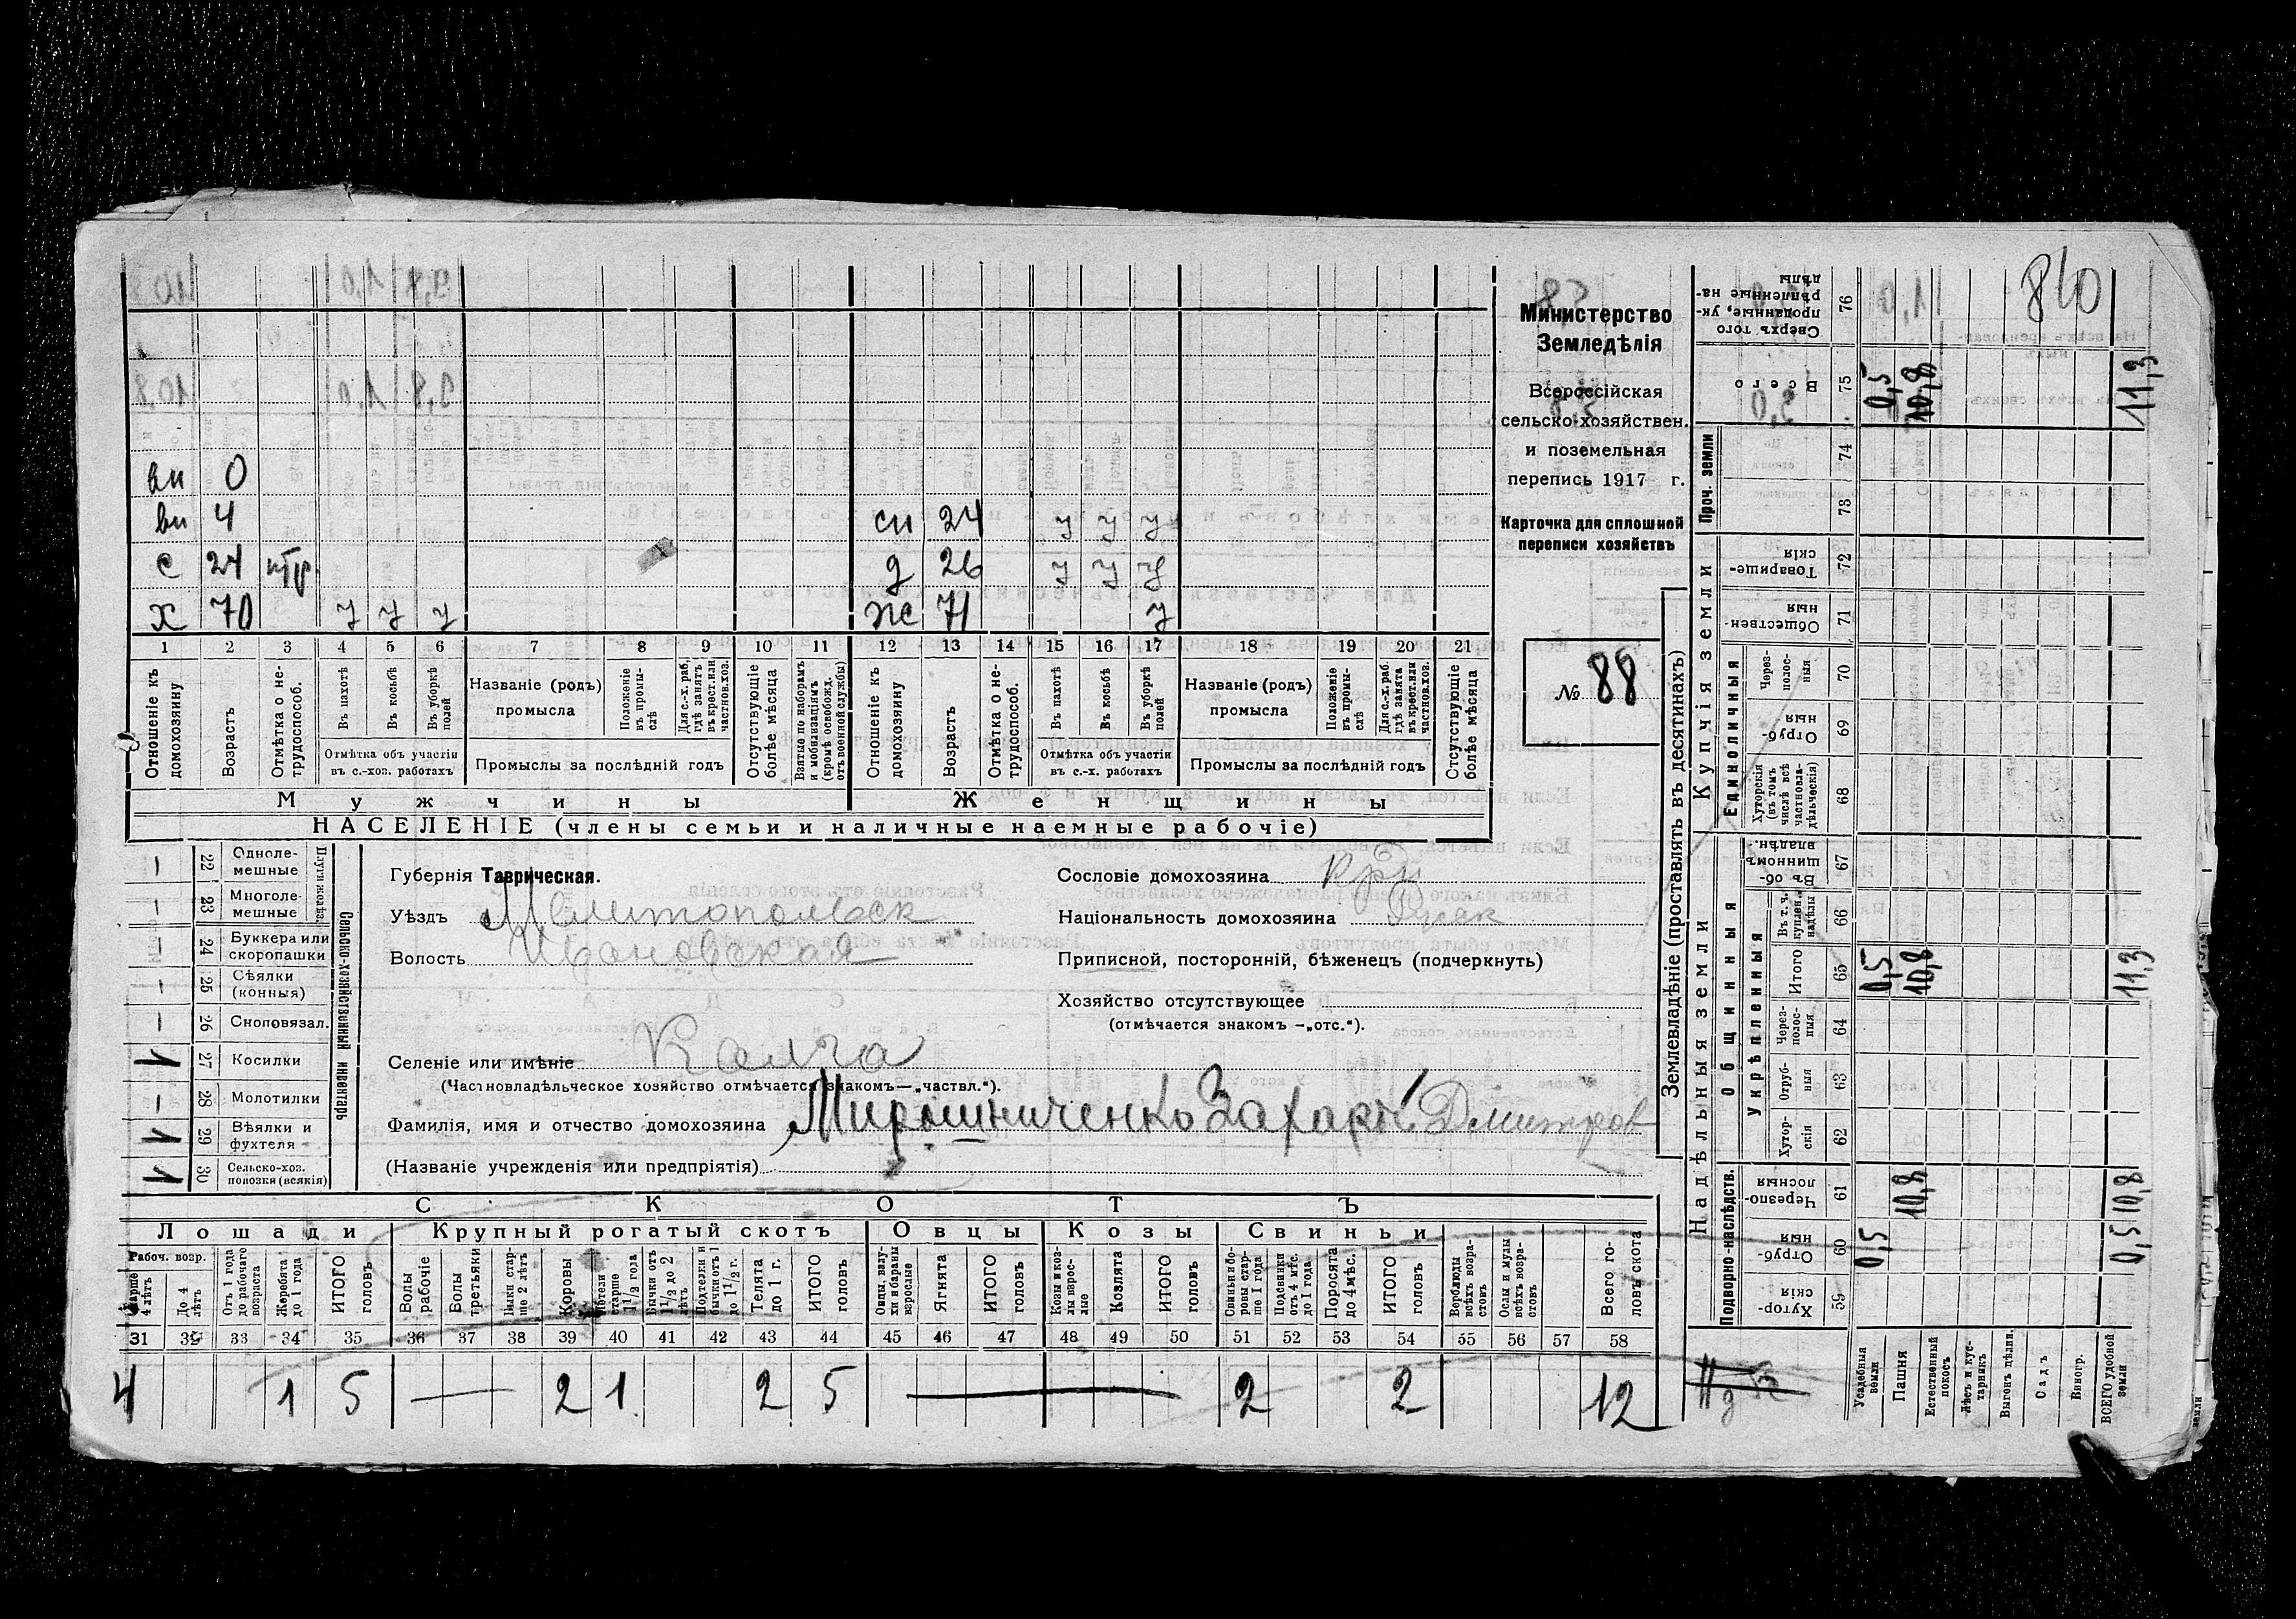 840
Министерство
Земледѣлія
Всероссійская
сельско-хозяйствен.
и поземельная
перепись 1917 г.
Карточка для сплошной
переписи хозяйствъ
№ 88
вн 0
вн 4 сн 24 у у у
с 24 нтр д 26 у у у
х 70 у у у ж 71 у
1 2 3 4 5 6 7 8 9 10 11 12 13 14 15 16 17 18 19 20 21
Отношеніе къ домохозяину
Возрастъ
Отмѣтка о не-трудоспособ.
Въ пахотѣ
Въ косьбѣ
Въ уборкѣ полей
Отмѣтка объ участіи
въ с.-хоз. работахъ
Названіе (родъ)
промысла
Положеніе въ промы-слѣ
Для с.-х. раб. гдѣ занятъ въ крест. или частнов. хоз.
Промыслы за послѣдній годъ
Отсутствующіе болѣе мѣсяца
Взятые по наборамъ и мобилизаціямъ (кромѣ освобожд. отъ военной службы)
Отношеніе къ домохозяину
Возрастъ
Отмѣтка о не-трудоспособ.
Въ пахотѣ
Въ косьбѣ
Въ уборкѣ полей
Отмѣтка объ участіи
въ с.-х. работахъ
Названіе (родъ)
промысла
Положеніе въ промы-слѣ
Для с.-х. раб. гдѣ занята въ крест. или частнов. хоз.
Промыслы за послѣдній годъ
Отсутствующіе болѣе мѣсяца
Мужчины Женщины
НАСЕЛЕНІЕ (члены семьи и наличные наемные рабочіе)
Сельско-хозяйственный инвентарь
Плуги желѣз.
— 22 Одноле-мешные
— 23 Многоле-мешные
— 24 Буккера или скоропашки
— 25 Сѣялки (конныя)
— 26 Сноповязал.
1 27 Косилки
— 28 Молотилки
1 29 Вѣялки и фухтеля
1 30 Сельско-хоз. повозки (всякія)
Губернія Таврическая.
Уѣздъ Мелитопольск
Волость Ивановская
Сословіе домохозяина Кр
Національность домохозяина Русск
Приписной, посторонній, бѣженецъ (подчеркнуть)
Хозяйство отсутствующее
(отмѣчается знакомъ —„отс.“).
Селеніе или имѣніе Калга
(Частновладѣльческое хозяйство отмѣчается знакомъ—„частвл.“).
Фамилія, имя и отчество домохозяина Мирошниченко Захаръ Дмитров
(Названіе учрежденія или предпріятія)
СКОТЪ
Лошади Крупный рогатый скотъ Овцы Козы Свиньи
Рабоч. возр.
Старше 4 лѣтъ
До 4 лѣтъ
Отъ 1 года до рабочаго возраста
Жеребята до 1 года
ИТОГО головъ
Волы рабочіе
Волы третьяки
Быки стар-ше 2 лѣтъ
Коровы
Нетели старше 1½ года
Бычки отъ 1½ до 2 лѣтъ
Подтелки и бычки отъ 1 до 1½ г.
Телята до 1 г.
ИТОГО головъ
Овцы, валу-хи и бараны взрослые
Ягнята
ИТОГО головъ
Козы и коз-лы взрос-лые
Козлята
ИТОГО головъ
Свиньи и бо-ровы стар-ше 1 года
Подсвинки отъ 4 мѣс. до 1 года
Поросята до 4 мѣс.
ИТОГО головъ
Верблюды всѣхъ возра-стовъ
Ослы и мулы всѣхъ возра-стовъ
Всего го-ловъ скота
31 32 33 34 35 36 37 38 39 40 41 42 43 44 45 46 47 48 49 50 51 52 53 54 55 56 57 58
4 1 5 — 2 1 2 5 — 2 2 12
Землевладѣніе (проставлять въ десятинахъ)
Купчія земли
Надѣльныя земли
Сверхъ того проданные, ук-рѣпленные на-дѣлы 76
Всего 75 0,5 10,8 11,3
Проч. земли 74 73
Товарище-скія 72
Обществен-ныя 71
Единоличныя
Через-полос-ныя 70
Отруб-ныя 69
Хуторскія (въ томъ числѣ всѣ частновла-дѣльческія) 68
Общинныя
Въ об-щинномъ владѣн. 67
Укрѣпленныя
Въ т. ч. куплен. надѣлы 66
Итого 65 0,5 10,8 11,3
Через-полос-ныя 64
Отруб-ныя 63
Хутор-скія 62
Подворно-наслѣдств.
Черезпо-лосныя 61 10,8 10,8
Отруб-ныя 60 0,5 0,5
Хутор-скія 59
Усадебныя земли
Пашня
Естественный покосъ
Лѣсъ и кус-тарникъ
Выгонъ цѣлин.
Садъ
Виногр.
ВСЕГО удобной земли